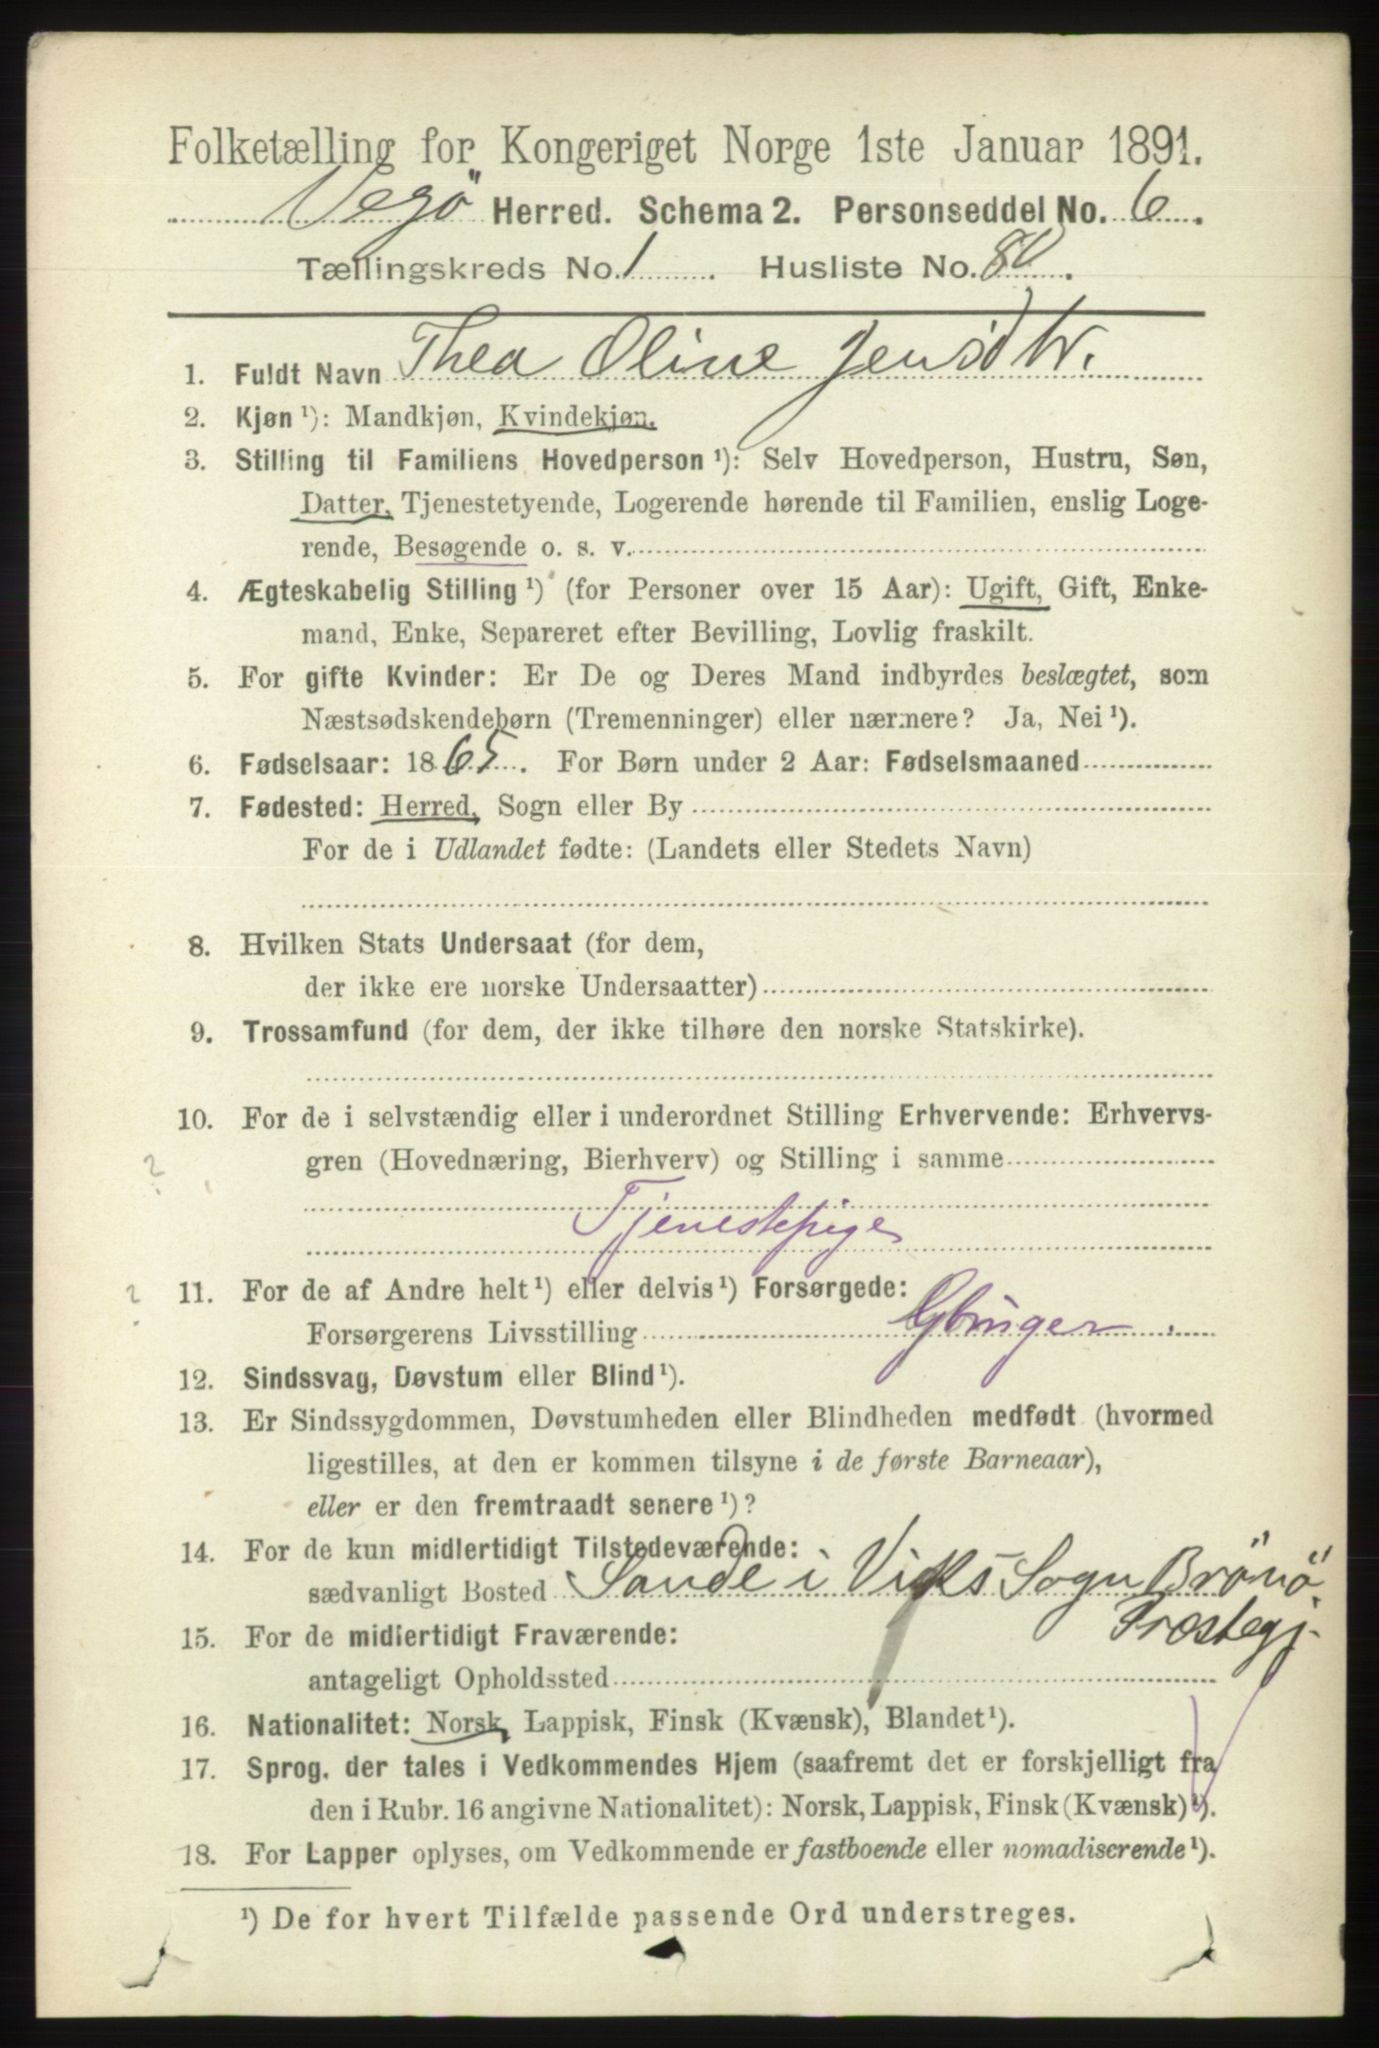 Folketælling for Kongeriget Norge 1ste Januar 1891.
Vegö Herred. Schema 2. Personseddel No. 6.
Tællingskreds No. 1. Husliste No. 80.
1. Fuldt Navn Thea Oline Jensdtr.
2. Kjøn ¹): Mandkjøn, Kvindekjøn.
3. Stilling til Familiens Hovedperson ¹): Selv Hovedperson, Hustru, Søn,
Datter, Tjenestetyende, Logerende hørende til Familien, enslig Loge-
rende, Besøgende o. s. v.
4. Ægteskabelig Stilling ¹) (for Personer over 15 Aar): Ugift, Gift, Enke-
mand, Enke, Separeret efter Bevilling, Lovlig fraskilt.
5. For gifte Kvinder: Er De og Deres Mand indbyrdes beslægtet, som
Næstsødskendebørn (Tremenninger) eller nærmere? Ja, Nei ¹).
6. Fødselsaar: 1865. For Børn under 2 Aar: Fødselsmaaned
7. Fødested: Herred, Sogn eller By
For de i Udlandet fødte: (Landets eller Stedets Navn)
8. Hvilken Stats Undersaat (for dem,
der ikke ere norske Undersaatter)
9. Trossamfund (for dem, der ikke tilhøre den norske Statskirke).
10. For de i selvstændig eller i underordnet Stilling Erhvervende: Erhvervs-
gren (Hovednæring, Bierhverv) og Stilling i samme
Tjenestepige
11. For de af Andre helt ¹) eller delvis ¹) Forsørgede:
Forsørgerens Livsstilling
12. Sindssvag, Døvstum eller Blind ¹).
13. Er Sindssygdommen, Døvstumheden eller Blindheden medfødt (hvormed
ligestilles, at den er kommen tilsyne i de første Barneaar),
eller er den fremtraadt senere ¹)?
14. For de kun midlertidigt Tilstedeværende:
sædvanligt Bosted Sande i Viks Sogn Brönö
Præstegj.
15. For de midlertidigt Fraværende:
antageligt Opholdssted
16. Nationalitet: Norsk, Lappisk, Finsk (Kvænsk), Blandet ¹).
17. Sprog, der tales i Vedkommendes Hjem (saafremt det er forskjelligt fra
den i Rubr. 16 angivne Nationalitet): Norsk, Lappisk, Finsk (Kvænsk) ¹).
18. For Lapper oplyses, om Vedkommende er fastboende eller nomadiserende ¹).
¹) De for hvert Tilfælde passende Ord understreges.